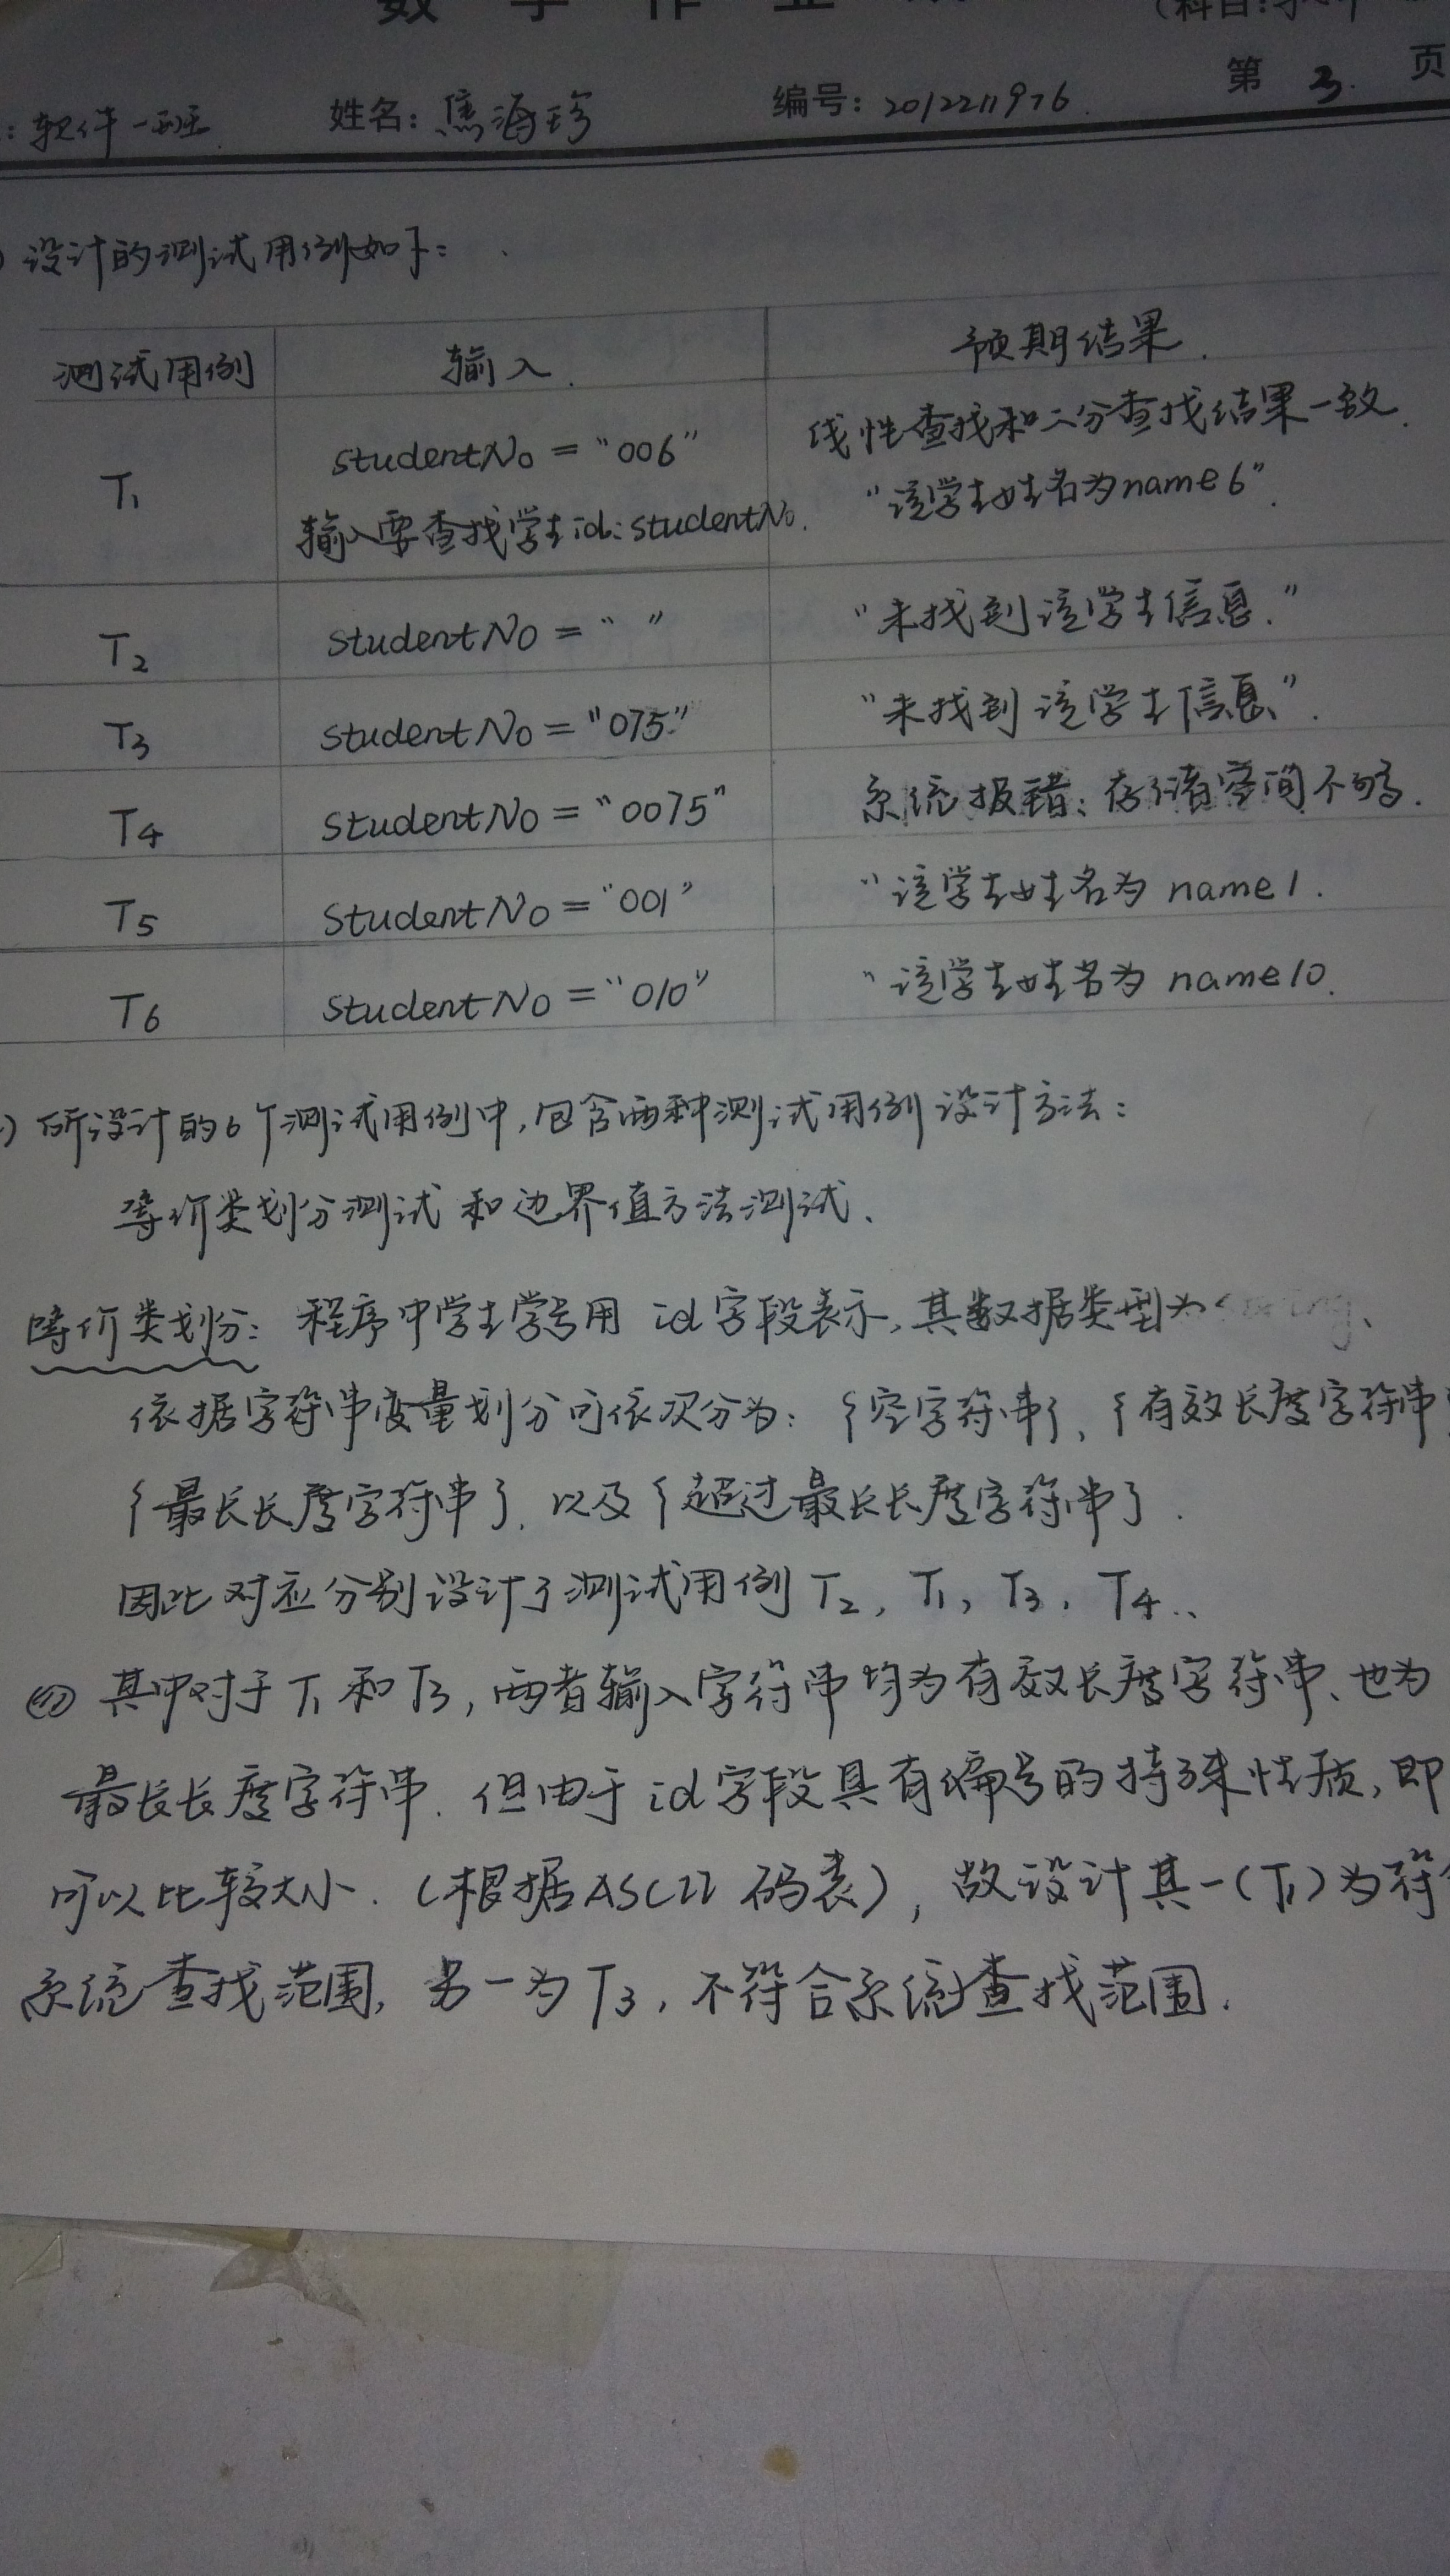 数 学 作 业 纸
（科目：
：软件一班 姓名：焦海珍 编号：2012211976 第 3 页
）设计的测试用例如下：
测试用例 输入． 预期结果．
T1 studentNo = “006” 线性查找和二分查找结果一致．
输入要查找学生id：studentNo． “该学生姓名为name6”．
T2 studentNo = “ ” “未找到该学生信息．”
T3 studentNo = “075” “未找到该学生信息”．
T4 studentNo = “0075” 系统报错：存储空间不够．
T5 studentNo = “001” “该学生姓名为 name1．
T6 studentNo = “010” “该学生姓名为 name10．
）所设计的6个测试用例中，包含两种测试用例设计方法：
等价类划分测试 和 边界值方法测试、
等价类划分：程序中学生学号用 id 字段表示，其数据类型为string、
依据字符串变量划分可依次分为：{空字符串}、{有效长度字符串
{最长长度字符串}．以及{超过最长长度字符串}．
因此对应分别设计了测试用例 T2，T1，T3，T4．．
其中对于 T1 和 T3，两者输入字符串均为有效长度字符串、也为
最长长度字符串．但由于 id 字段具有编号的特殊性质，即
可以比较大小．（根据ASCII 码表），故设计其一（T1）为符
系统查找范围，另一为 T3，不符合系统查找范围．